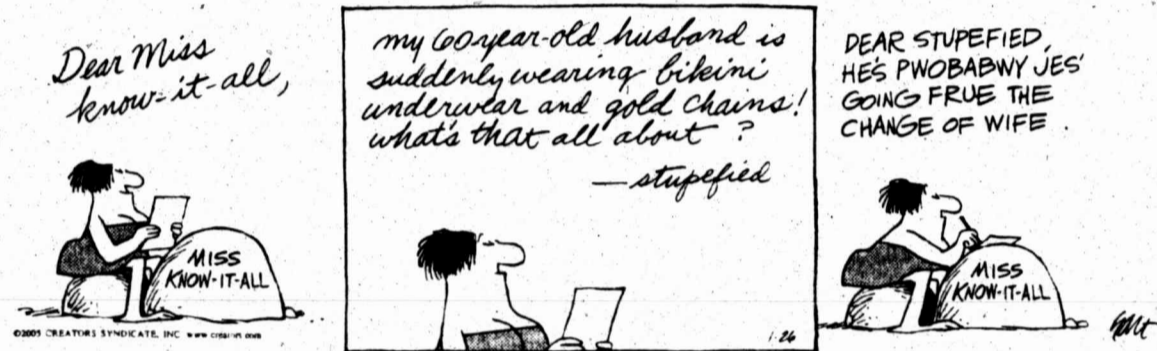 Dear Miss
know-it-all,
MISS
KNOW-IT-ALL
©2005 CREATORS SYNDICATE, INC.
my 60 year-old husband is
suddenly wearing bikini
underwear and gold chains!
what's that all about ?
— stupefied
1-26
DEAR STUPEFIED,
HE'S PWOBABWY JES'
GOING FRUE THE
CHANGE OF WIFE .
MISS
KNOW-IT-ALL